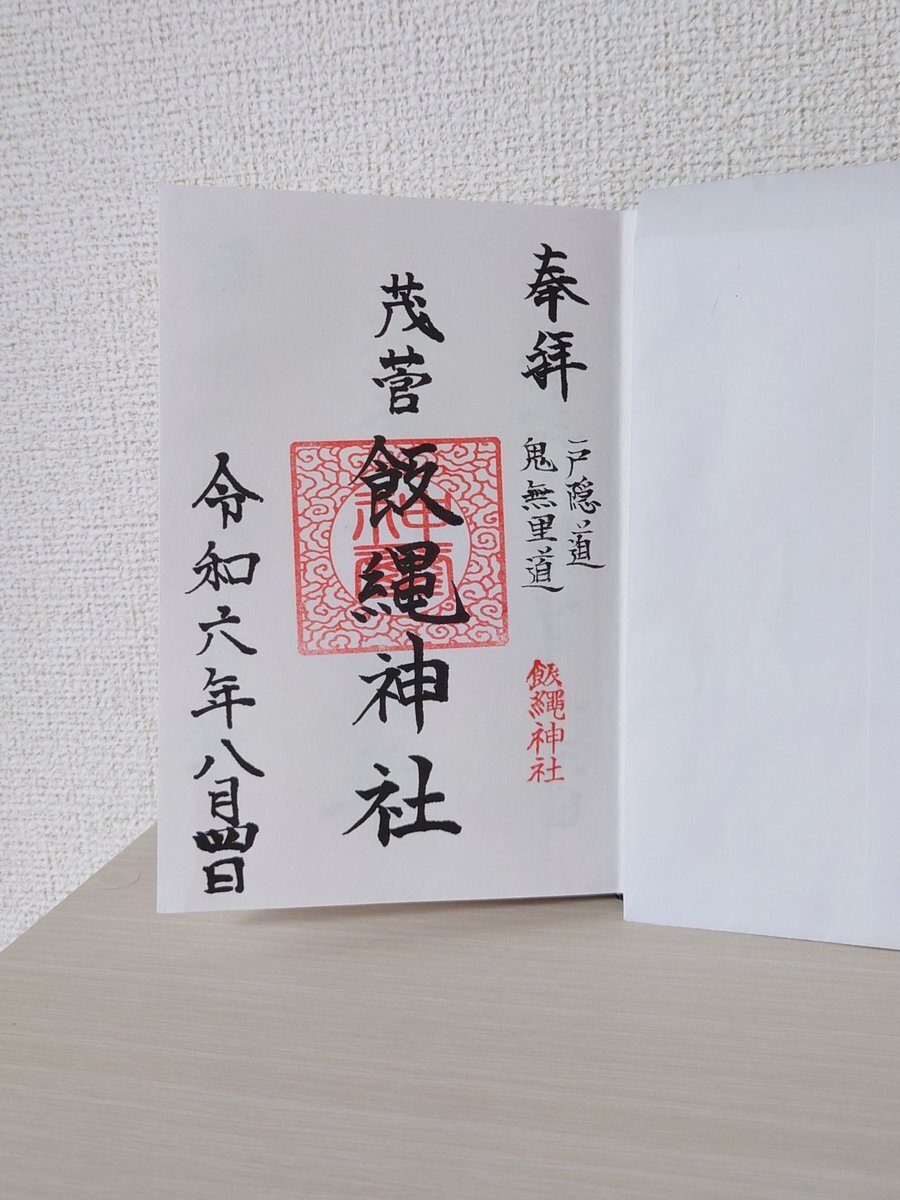 奉拝
戸隠道
鬼無里道
飯縄神社
茂菅
飯縄神社
令和六年八月四日